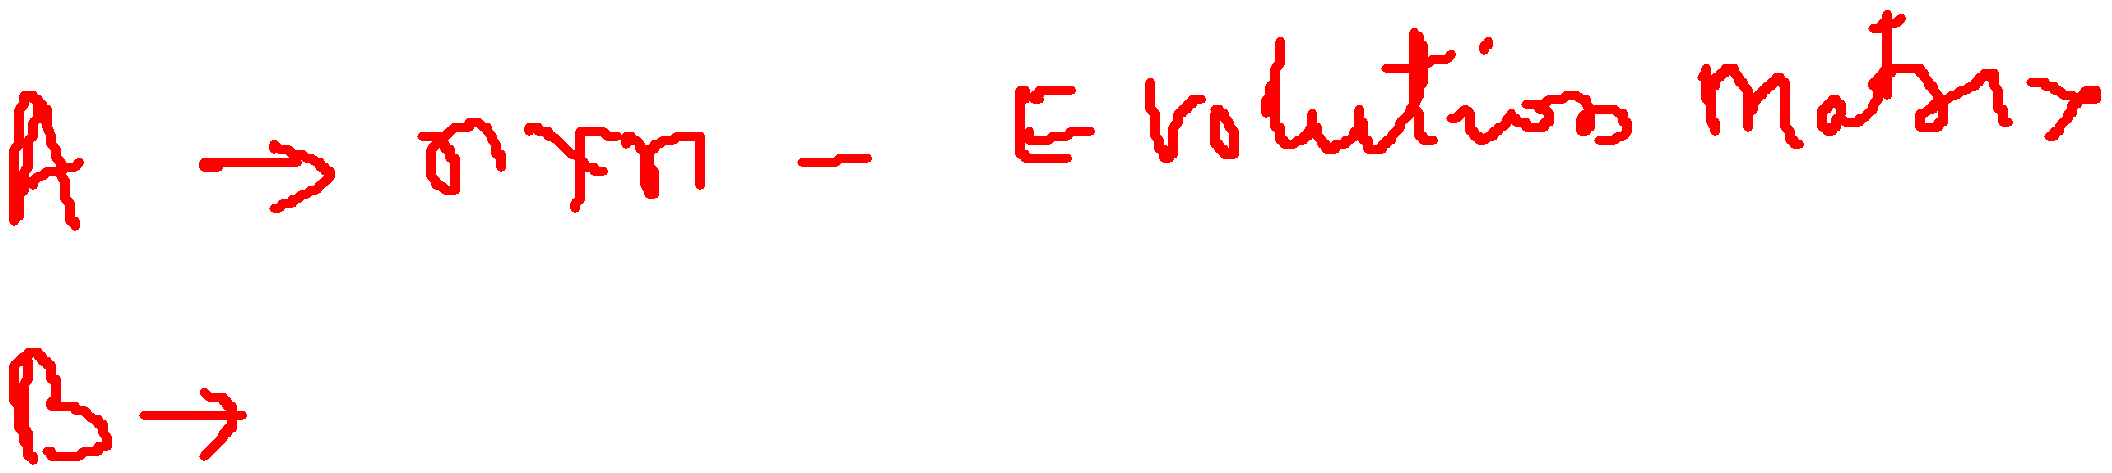 A → n×n - Evolution Matrix
B →